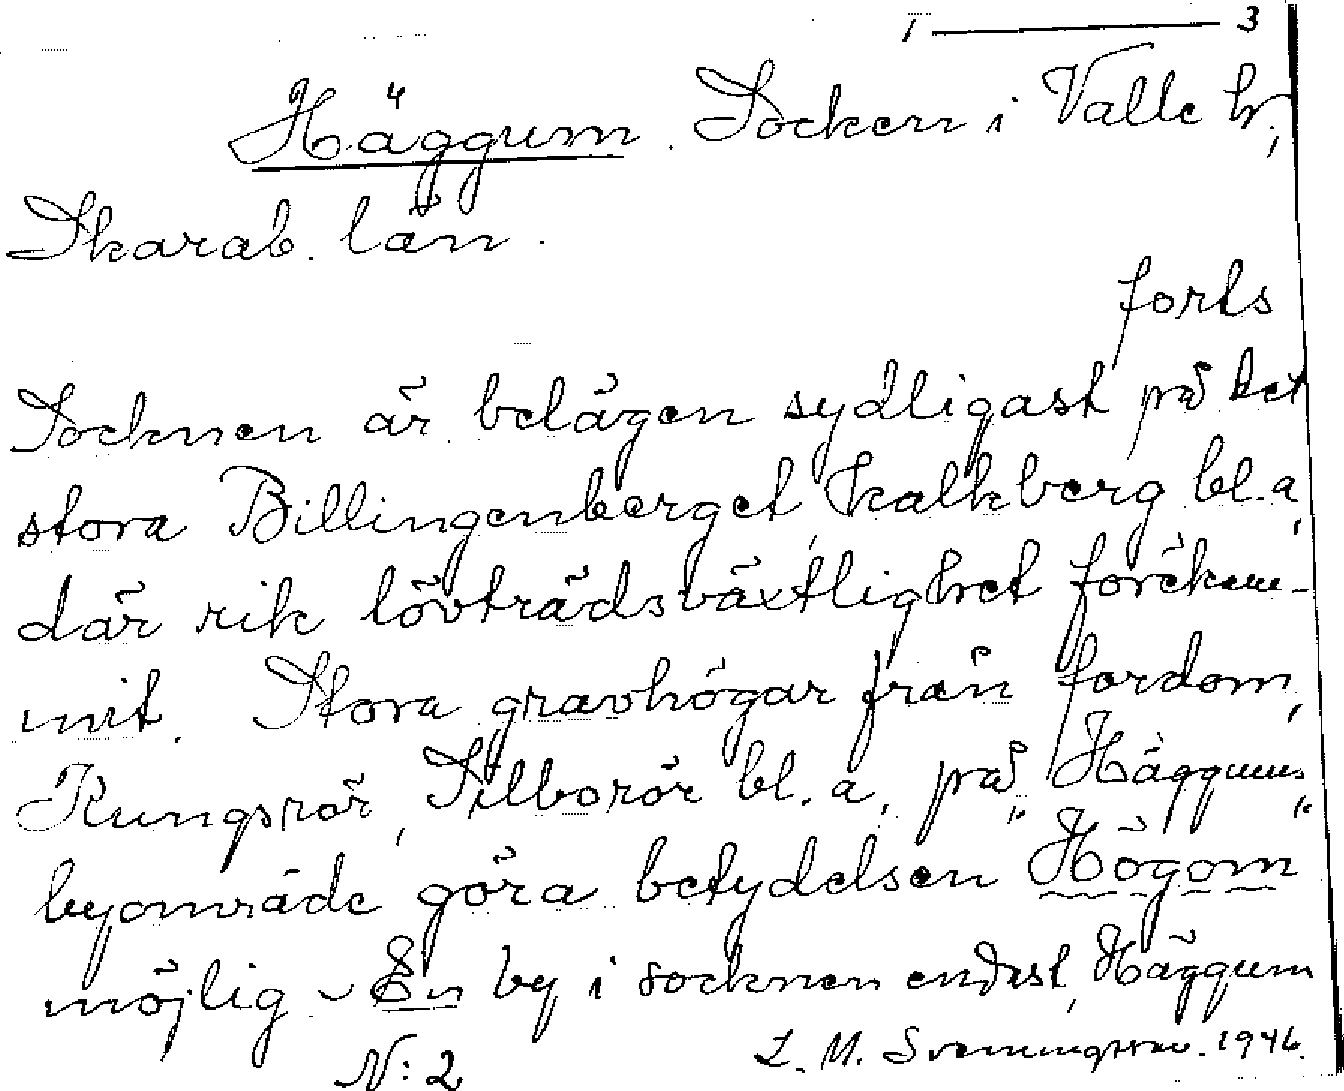 1 — 3
Häggum. Socken i Valle hr,
Skarab. län.
forts
Socknen är belägen sydligast på det
stora Billingenberget, kalkberg bl. a,
där rik lövträdsväxtlighet förekom-
mit. Stora gravhögar från fordom,
Kungsrör, Silborör bl. a. på "Häggums"
byområde göra betydelsen Högom
möjlig - En by i socknen endast, Häggum
N:2 L. M. Svenungsson. 1946.